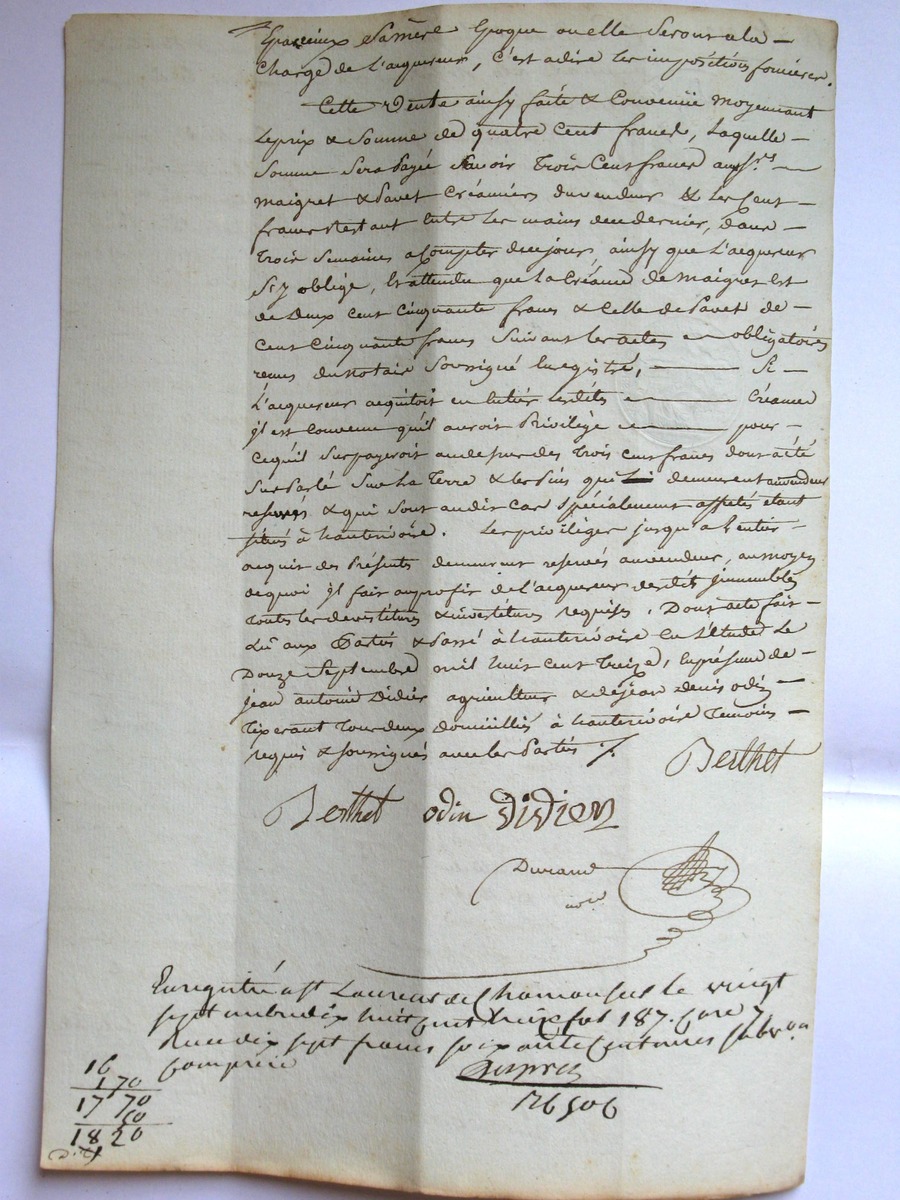 Epoque ou elle Seront a la —
Charge de L'acquereur, c'est adire les impositions foncieres.
Cette Vente ainsy faite & Convenüe moyennant
Le prix & Somme de quatre Cent francs, Laquelle —
Somme Sera Payée Savoir Trois Cent francs aux Srs —
maigret & Pavet Créanciers du vendeur & les Cent —
francs Restant Entre les mains de ce dernier, dans —
Trois Semaines a Compter de ce jour, ainsy que L'acquereur
S'y oblige, Et attendu que La Créance de Maigret est
de Deux Cent Cinquante francs & Celle de Pavet de —
Cent Cinquante francs Suivant les actes obligatoires
recus du Notaire Soussigné Enregistré, — Si —
L'acquereur acquitoit en Entier les dites — Créances
jl est Convenu qu'il auroit Privilège — pour —
Ce qu'il Surpayeroit au dessus des Trois Cent francs dont a été
Sus Parlé Sur La Terre & les Pins qui demeurent au vendeur
reservés & qui Sont au dit cas Spécialement affectés étant
Situés à hauterivoire. Les privilèges jusqu'a L'entier —
acquit des Présents demeurent reservés au vendeur, au moyen
de quoi jl fait au profit de l'acquereur des dits jmmeubles
Toutes les devestitures & investitures requises. Dont acte fait —
Lû aux Parties & Passé à hauterivoire En L'Etude Le
Douze Septembre mil huit Cent Treize, En présence de —
jean antoine Didier agriculteur & de jean Denis odin —
Tixerant Tous deux domiciliés à hauterivoire Temoins —
requis & Soussignés avec les Parties ./.
Berthet
Berthet odin Didier
Durand
nore
Enregistré a St Laurent de Chamousset le vingt
sept dix huit cent treize fol 187. Case 7
Recu dix sept francs soixante Centimes
Comprise
76506
16
1 70
17 70
50
18 20